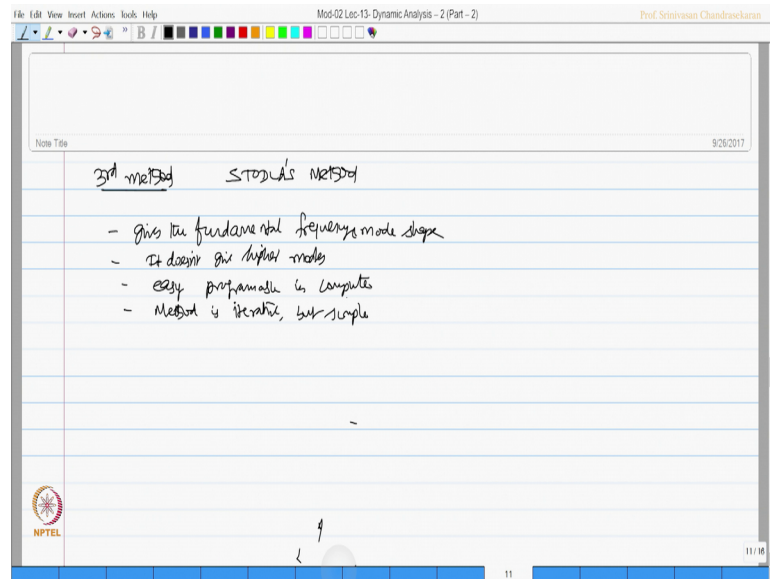 File Edit View Insert Actions Tools Help
Mod-02 Lec-13- Dynamic Analysis – 2 (Part – 2)
Prof. Srinivasan Chandrasekaran
B I
Note Title
9/26/2017
3rd method STODLA'S Method
- gives the fundamental frequency & mode shape
- It doesn't give higher modes
- easy programable in computer
- Method is iterative, but simple
NPTEL
11/16
11